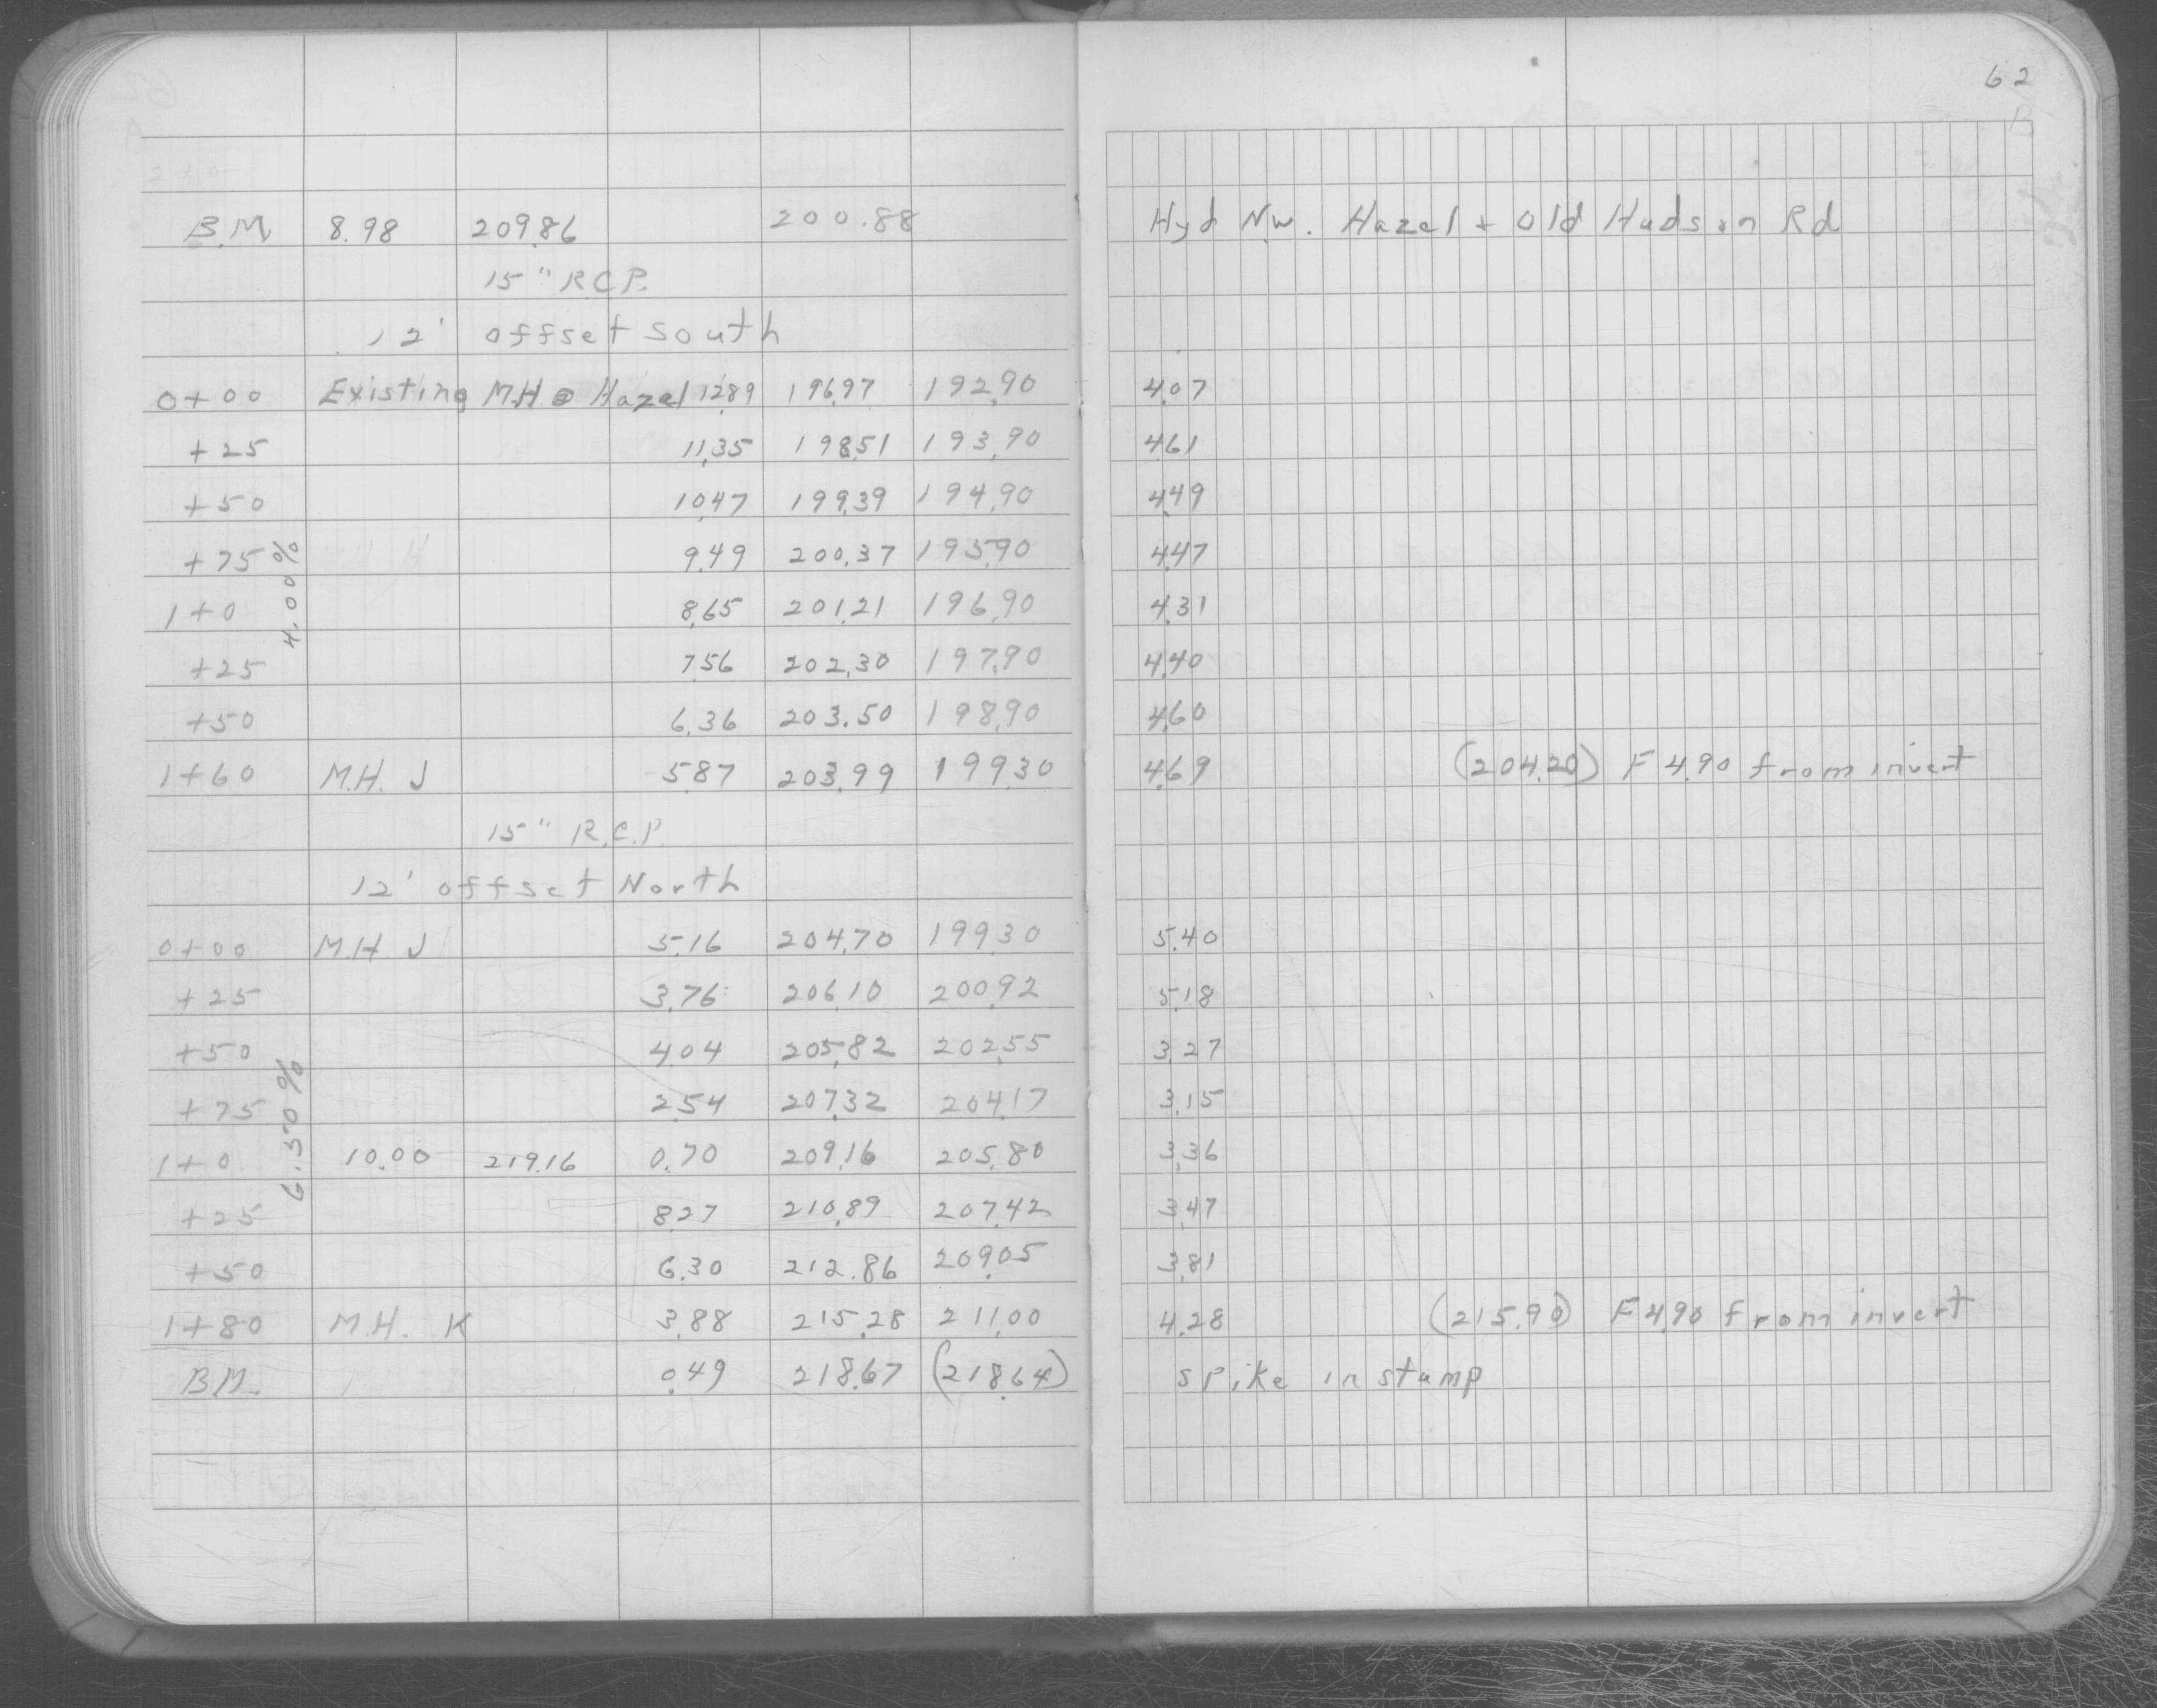 62
B.M. 8.98 209.86 200.88 Hyd N.W. Hazel + Old Hudson Rd
15" R.C.P.
12' offset south
0+00 Existing M.H. @ Hazel 12.89 196.97 192.90 4.07
+25 11.35 198.51 193.90 4.61
+50 10.47 199.39 194.90 4.49
+75 9.49 200.37 195.90 4.47
1+0 8.65 201.21 196.90 4.31
+25 7.56 202.30 197.90 4.40
+50 6.36 203.50 198.90 4.60
4.00%
1+60 M.H. J 5.87 203.99 199.30 4.69 (204.20) F 4.90 from invert
15" R.C.P.
12' offset North
0+00 M.H. J 5.16 204.70 199.30 5.40
+25 3.76 206.10 200.92 5.18
+50 4.04 205.82 202.55 3.27
+75 2.54 207.32 204.17 3.15
1+0 10.00 219.16 0.70 209.16 205.80 3.36
+25 8.27 210.89 207.42 3.47
+50 6.30 212.86 209.05 3.81
6.50%
1+80 M.H. K 3.88 215.28 211.00 4.28 (215.90) F 4.90 from invert
B.M. 0.49 218.67 (218.64) spike in stump